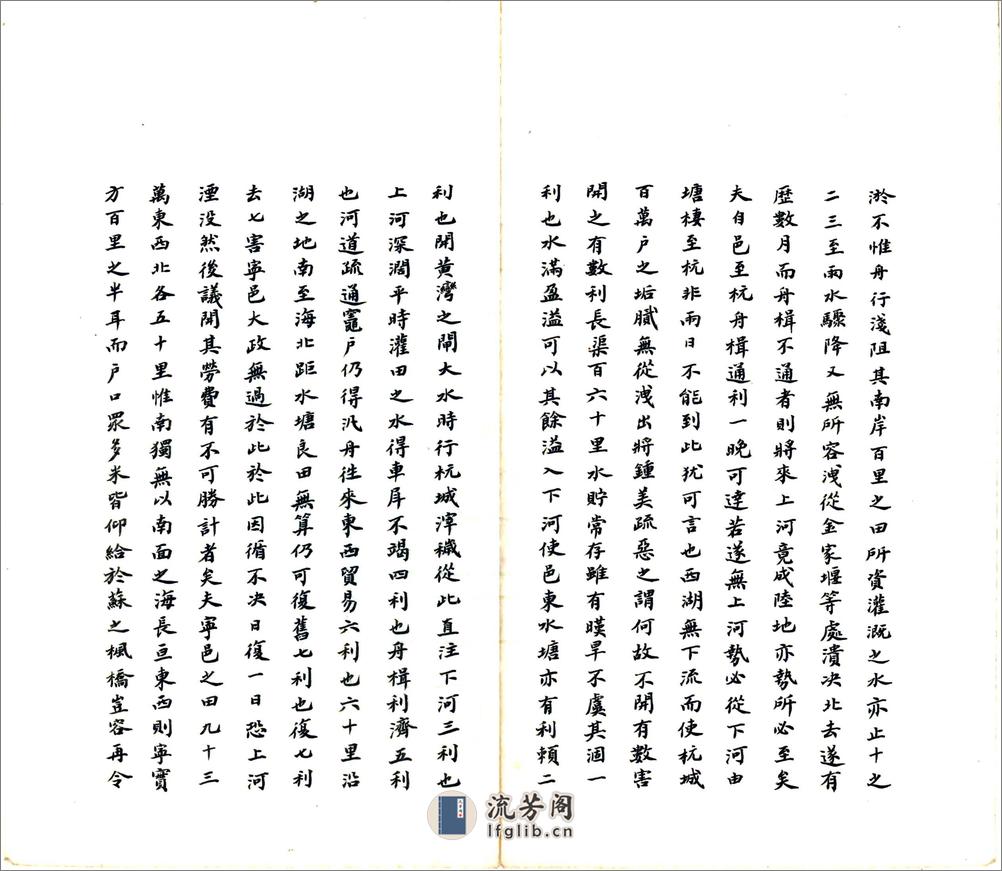 淤不惟舟行淺阻其南岸百里之田所資灌溉之水亦止十之
二三至雨水驟降又無所容洩從金家堰等處潰决北去遂有
歷數月而舟楫不通者則將來上河竟成陸地亦勢所必至矣
夫自邑至杭舟楫通利一晚可達若遂無上河勢必從下河由
塘棲至杭非兩日不能到此犹可言也西湖無下流而使杭城
百萬户之垢膩無從洩出將鍾美疏惡之謂何故不開有數害
開之有數利長渠百六十里水貯常存雖有暵旱不虞其涸一
利也水滿盈溢可以其餘溢入下河使邑東水塘亦有利賴二
利也開黄灣之閘大水時行杭城滓穢從此直注下河三利也
上河深濶平時灌田之水得車戽不竭四利也舟楫利濟五利
也河道疏通竈户仍得汎舟往來東西貿易六利也六十里沿
湖之地南至海北距水塘良田無算仍可復舊七利也復七利
去七害寧邑大政無過於此於此因循不决日復一日恐上河
湮没然後議開其勞費有不可勝計者矣夫寧邑之田九十三
萬東西北各五十里惟南獨無以南面之海長亘東西則寧實
方百里之半耳而户口眾多米皆仰給於蘇之楓橋豈容再令
流芳阁
lfglib.cn